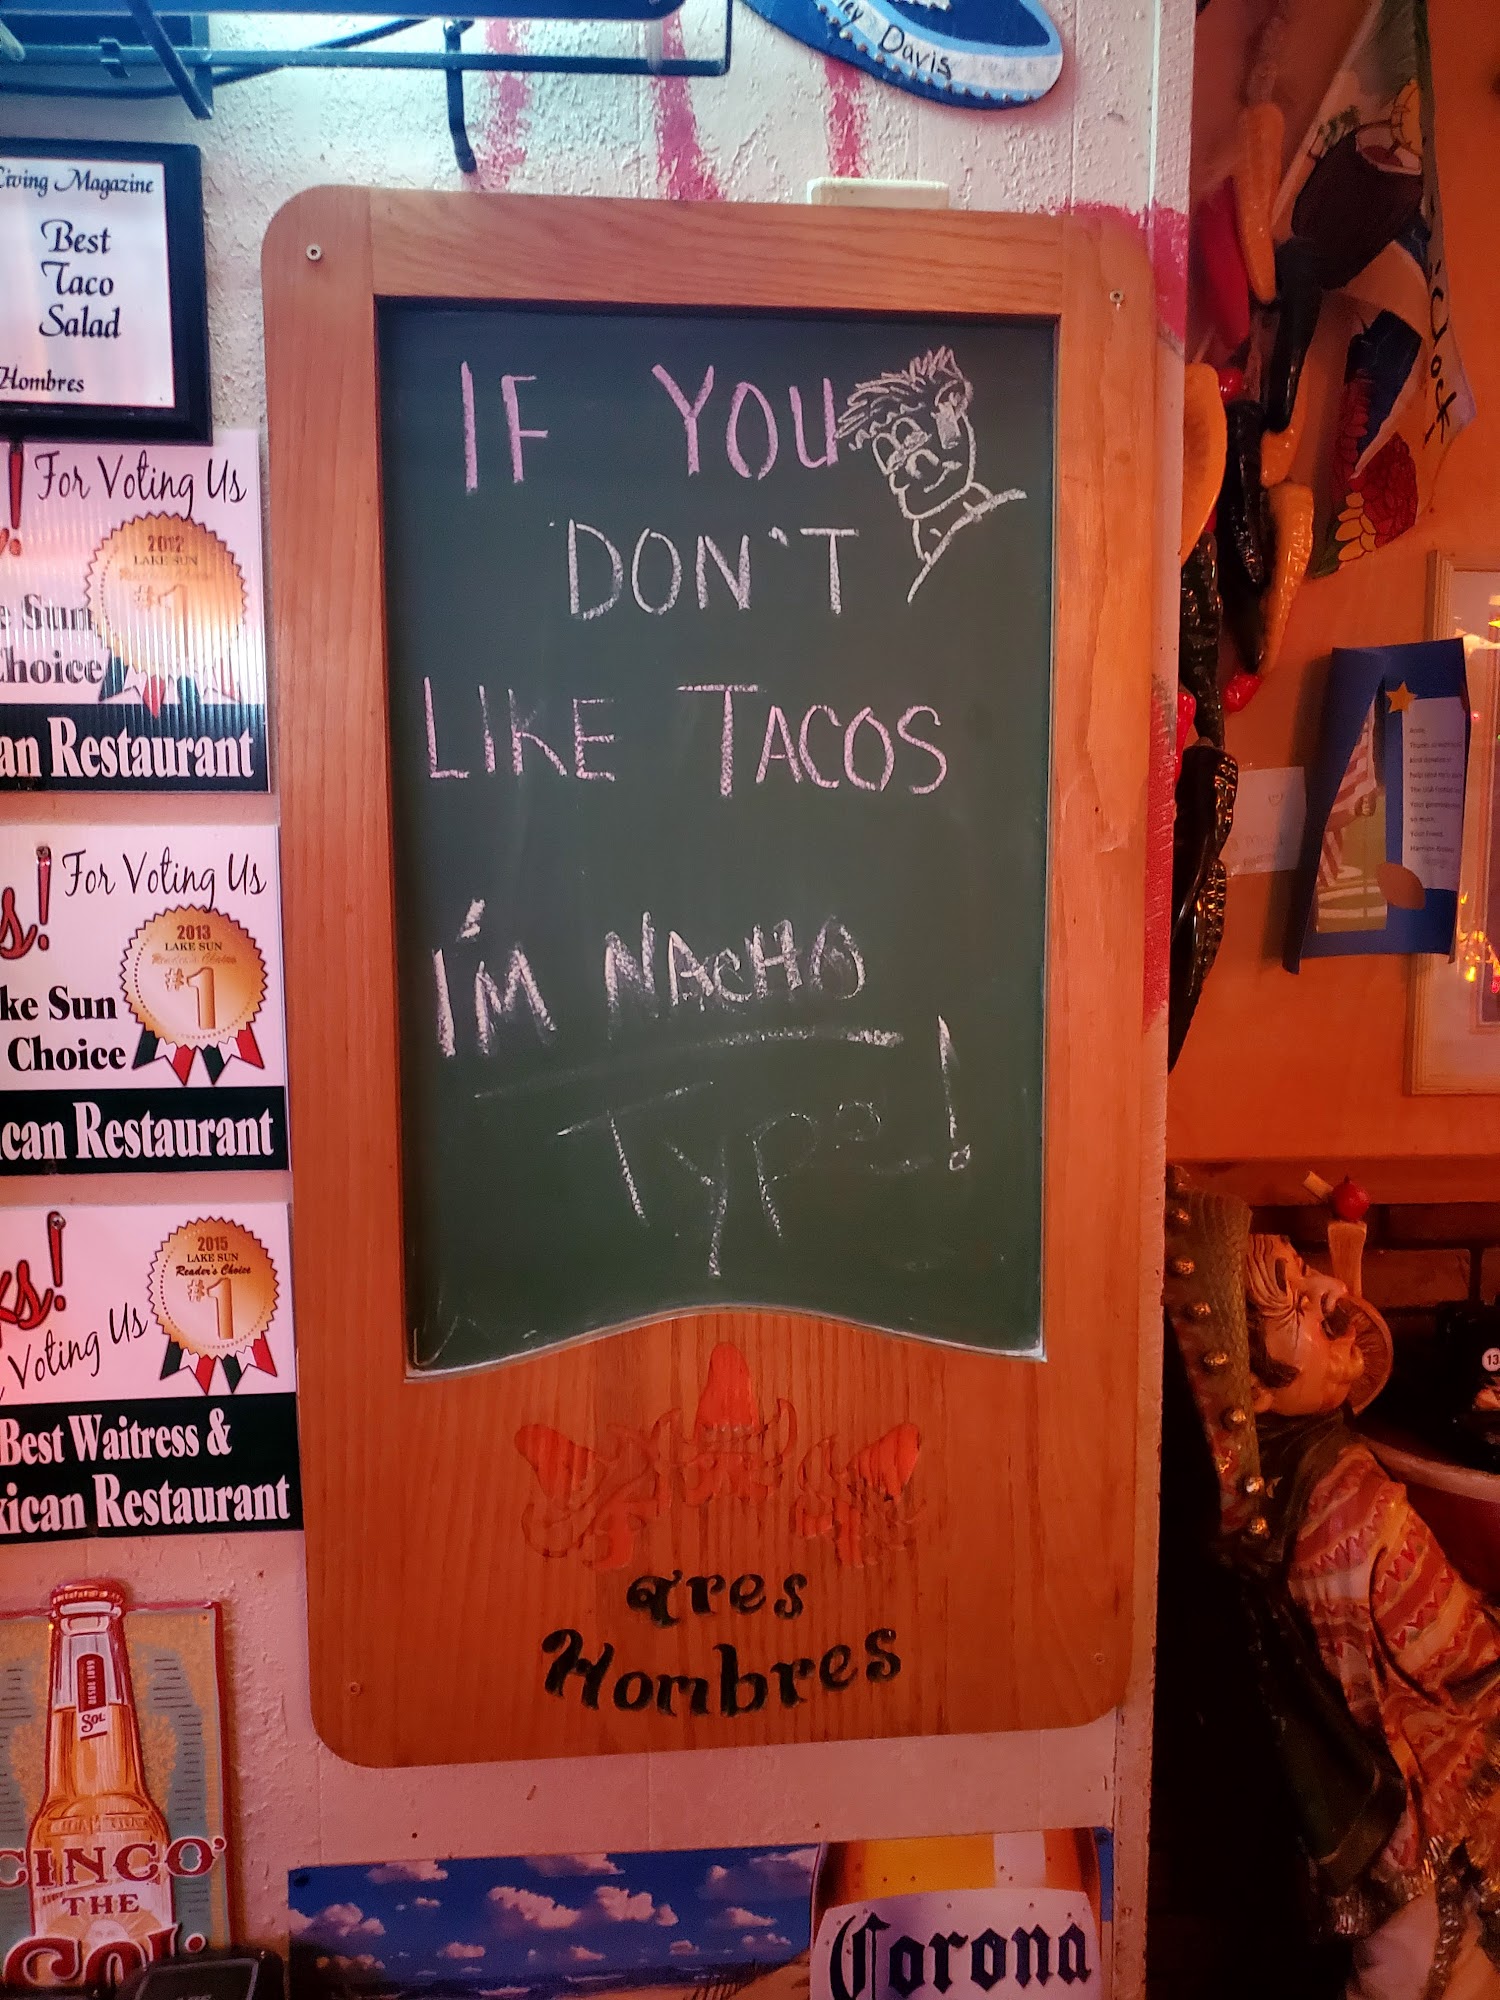 ey Davis
Living Magazine
Best
Taco
Salad
Hombres
IF YOU
DON'T
LIKE TACOS
I'M NACHO
TYPE!
Tres
Hombres
! For Voting Us
2012
LAKE SUN
Reader's Choice
#1
e Sun
Choice
an Restaurant
s! For Voting Us
2013
LAKE SUN
Reader's Choice
#1
ke Sun
Choice
can Restaurant
ks!
Voting Us
2015
LAKE SUN
Reader's Choice
#1
Best Waitress &
xican Restaurant
Sol
CINCO'
THE
Sol
Corona
13